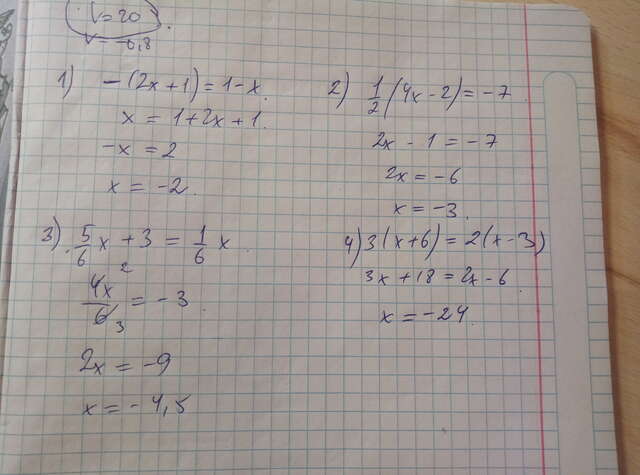 V=20
V=-0,8
1) -(2x+1)=1-x
x = 1+2x+1
-x = 2
x = -2
2) 1/2(4x-2)=-7
2x - 1 = -7
2x = -6
x = -3
3) 5/6 x + 3 = 1/6 x
4x 2 / 6 3 = -3
2x = -9
x = -4,5
4) 3(x+6)=2(x-3)
3x+18=2x-6
x = -24